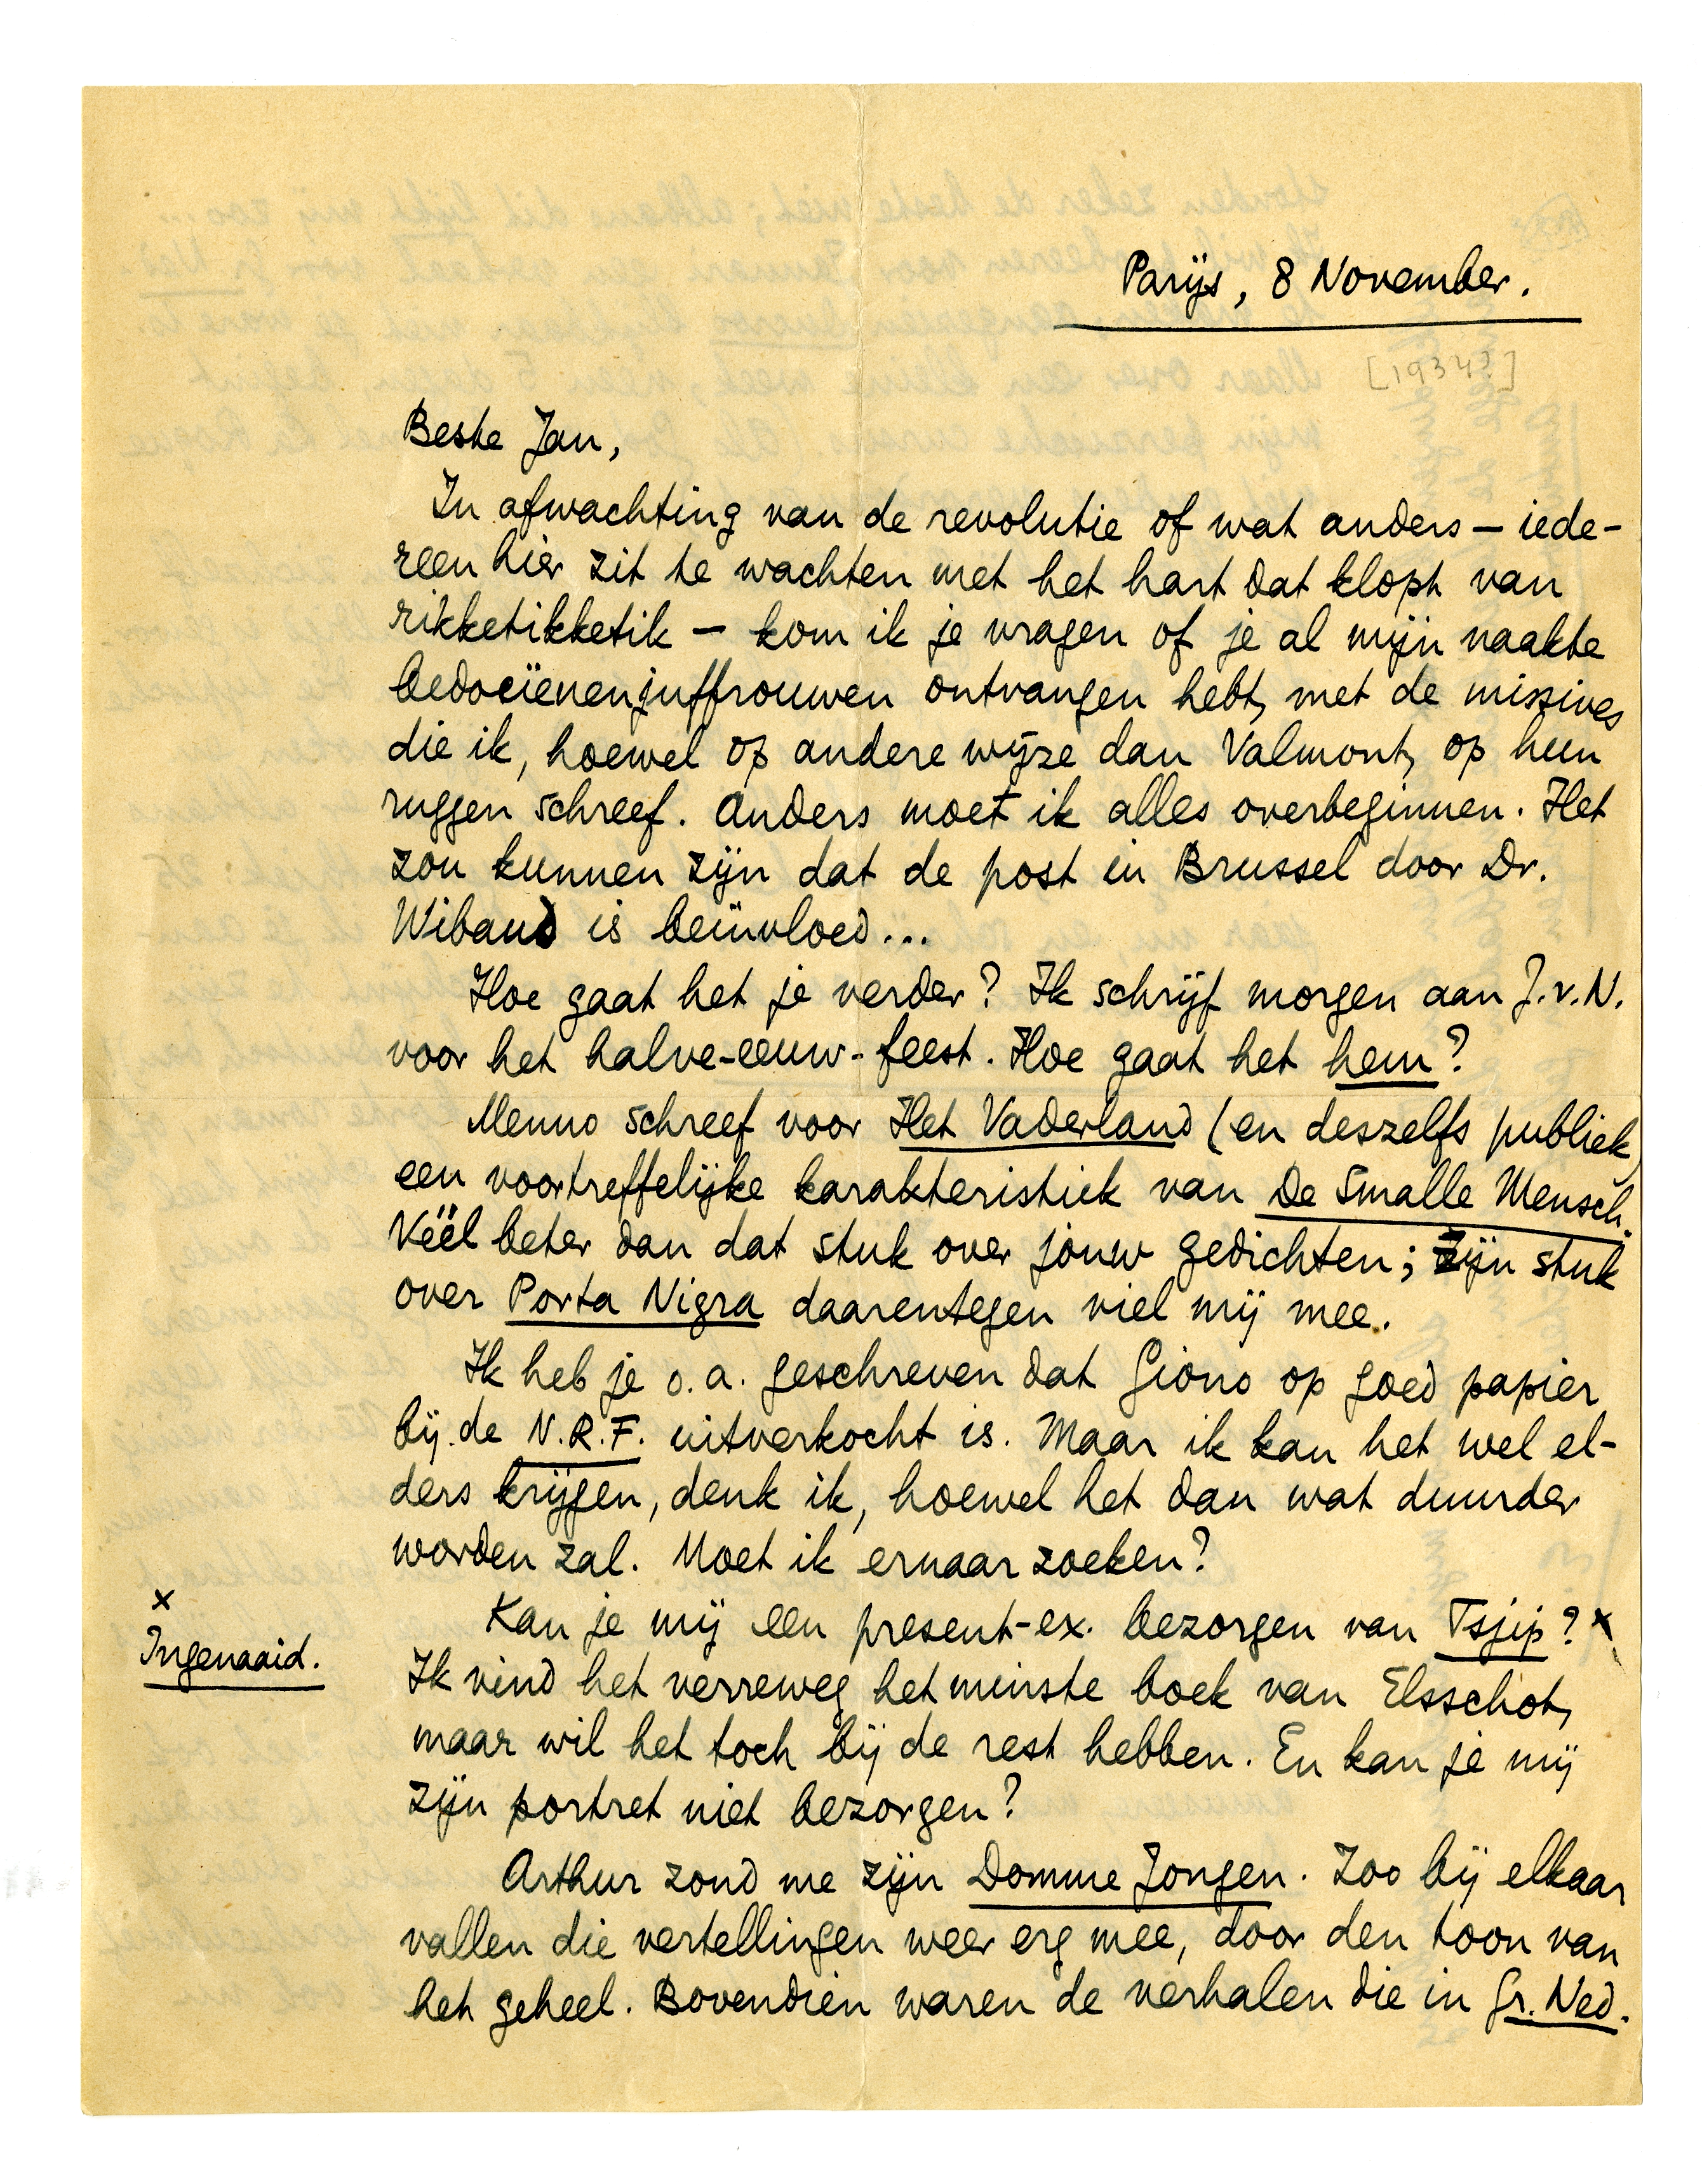 Parijs, 8 November.
[1934?]
Beste Jan,
In afwachting van de revolutie of wat anders – iede-
reen hier zit te wachten met het hart dat klopt van
rikketikketik – kom ik je vragen of je al mijn naakte
bedoeïenenjuffrouwen ontvangen hebt, met de missives
die ik, hoewel op andere wijze dan Valmont, op hun
ruggen schreef. Anders moet ik alles overbeginnen. Het
zou kunnen zijn dat de post in Brussel door Dr.
Wibaud is beïnvloed...
Hoe gaat het je verder? Ik schrijf morgen aan J.v.N.
voor het halve-eeuw-feest. Hoe gaat het hem?
Menno schreef voor Het Vaderland (en deszelfs publiek)
een voortreffelijke karakteristiek van De Smalle Mensch.
Véél beter dan dat stuk over jouw gedichten; zijn stuk
over Porta Nigra daarentegen viel mij mee.
Ik heb je o.a. geschreven dat Giono op goed papier
bij de N.R.F. uitverkocht is. Maar ik kan het wel el-
ders krijgen, denk ik, hoewel het dan wat duurder
worden zal. Moet ik ernaar zoeken?
Kan je mij een present-ex. bezorgen van Tsjip? x
x
Ingenaaid.
Ik vind het verreweg het minste boek van Elsschot,
maar wil het toch bij de rest hebben. En kan je mij
zijn portret niet bezorgen?
Arthur zond me zijn Domme Jongen. Zoo bij elkaar
vallen die vertellingen weer erg mee, door den toon van
het geheel. Bovendien waren de verhalen die in Gr. Ned.